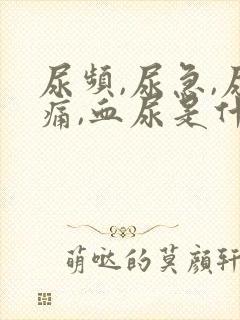 尿頻,尿急,尿
痛,血尿是什
萌哒的莫顔轩